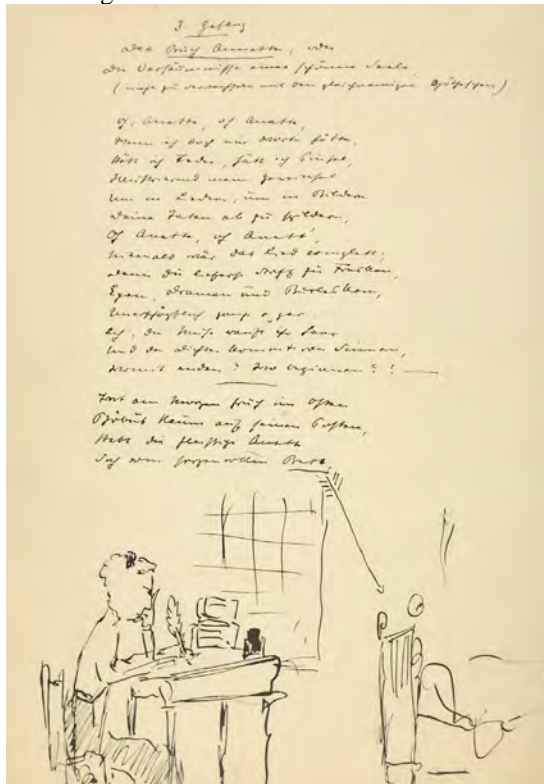 3. Gesang
Das Buch Annette, oder
Die Versäumnisse einer schönen Seele
(nicht zu verwechseln mit dem gleichnamigen Goetheschen)
O, Anette, oh Anette,
Wenn ich doch nur Worte hätte,
Hätt ich Feder, hätt ich Pinsel,
Um in Liedern, um in Bildern
Deine Taten all zu schildern,
Oh Anette, oh Anett',
Niemals wär das Lied complett;
Denn du lieferst Stoff zu Fresken,
Epen, Dramen und Burlesken,
Unerschöpflich ganz u. gar
Ach, die Muse rauft ihr Haar
Und der Dichter kommt von Sinnen,
Womit enden? Wo beginnen?! —
Fast am Morgen früh im Osten
Phöbus kaum auf seinem Posten,
Hebt die fleissige Anett
Sich vom sorgenvollen Bett